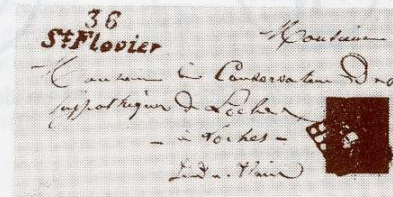 36
St Flovier
Monsieur
Monsieur le Conservateur Des
hypothèques De Loches
- à Loches -
Indre et Loire